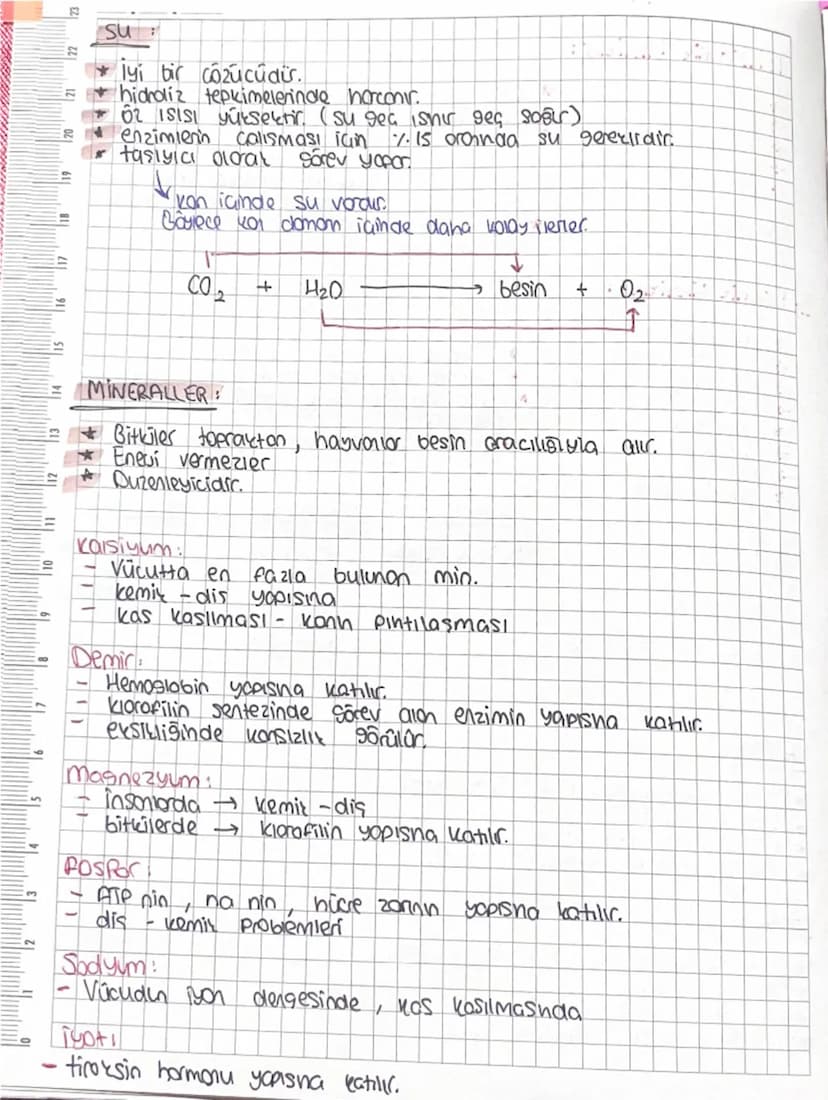 23
22
21
20
19
18
17
16
15
14
13
12
11
10
9
8
7
6
5
4
3
2
1
0
SU :
* iyi bir çözücüdür.
* hidroliz tepkimelerinde harcanır.
* öz ısısı yüksektir. (su geç ısınır geç soğur)
* enzimlerin çalışması için %15 oranında su gereklidir.
* taşıyıcı olarak görev yapar.
kan içinde su vardır.
Böylece kan damarı içinde daha kolay ilerler.
CO2 + H2O → besin + O2
MİNERALLER :
* Bitkiler topraktan, hayvanlar besin aracılığıyla alır.
* Enerji vermezler
* Düzenleyicidir.
Kalsiyum :
- Vücutta en fazla bulunan min.
- kemik - diş yapısına
- kas kasılması - kanın pıhtılaşması
Demir :
- Hemoglobin yapısına katılır.
- klorofilin sentezinde görev alan enzimin yapısına katılır.
- eksikliğinde kansızlık görülür.
Magnezyum :
- insanlarda → kemik - diş
- bitkilerde → klorofilin yapısına katılır.
fosfor :
- ATP nin, na nin, hücre zarının yapısına katılır.
- diş - kemik problemleri
Sodyum :
- Vücudun iyon dengesinde, kas kasılmasında
iyot :
- tiroksin hormonu yapısına katılır.